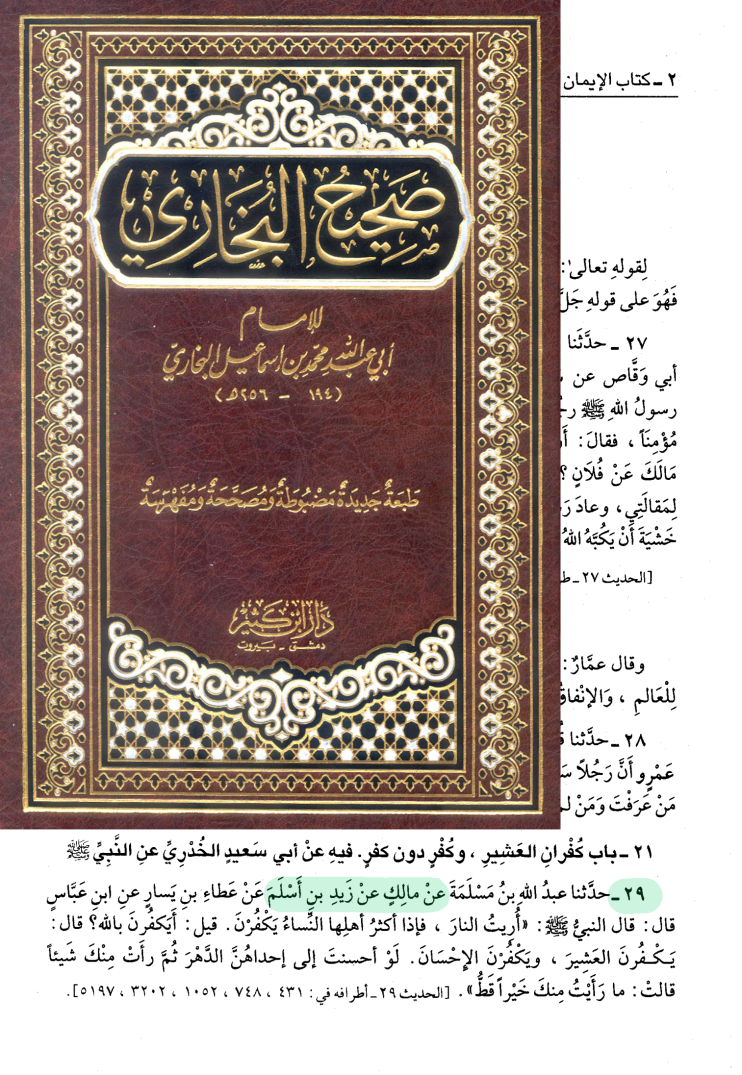 صَحِيحُ البُخَارِي
للإمام
أبي عبد الله محمد بن اسماعيل البخاري
(١٩٤ - ٢٥٦ هـ)
طَبعَةٌ جَدِيدَةٌ مَضْبُوطَةٌ وَمُصَحَّحَةٌ وَمُفَهْرَسَةٌ
دار ابن كثير
دمشق - بيروت
٢ ـ كتاب الإيمان
لِقولهِ تعالىٰ:
فَهُوَ على قولهِ جَلَّ
٢٧ ـ حدَّثَنا
أبي وَقَّاص عن
رسولُ اللهِ ﷺ
مُؤْمِنَاً ، فقالَ:
مَالَكَ عَنْ فُلَانٍ ؟
لِمَقالَتِي ، وعادَ
خَشْيَةَ أَنْ يَكُبَّهُ اللهُ
[الحديث ٢٧ ـ
وقال عمَّارٌ:
لِلْعالمِ ، وَالإنْفاقُ
٢٨ ـ حدَّثنا
عَمْرٍو أنَّ رَجُلًا
مَنْ عَرَفْتَ وَمَنْ لم
٢١ ـ باب كُفْرانِ العَشِيرِ ، وكُفْرٍ دون كفرٍ. فيهِ عنْ أبي سَعيدٍ الخُدْرِيِّ عنِ النَّبِيِّ ﷺ
٢٩ ـ حدَّثنا عبدُ اللهِ بنُ مَسْلَمَةَ عنْ مالِكٍ عنْ زَيدِ بنِ أَسْلَمَ عَنْ عَطاءِ بنِ يَسارٍ عنِ ابنِ عَبَّاسٍ
قال: قال النبيُّ ﷺ: «أُرِيتُ النارَ ، فإذا أكثرُ أهلِها النِّساءُ يَكْفُرْنَ. قيل: أَيَكفُرنَ بالله؟ قال:
يَكْفُرنَ العَشِيرَ ، ويَكْفُرْنَ الإحْسَانَ. لَوْ أحسنتَ إلى إحداهُنَّ الدَّهْرَ ثُمَّ رأَتْ مِنْكَ شَيئاً
قالتْ: ما رَأَيْتُ مِنكَ خَيْراً قَطُّ». [الحديث ٢٩ ـ أطرافه في: ٤٣١ ، ٧٤٨ ، ١٠٥٢ ، ٣٢٠٢ ، ٥١٩٧].